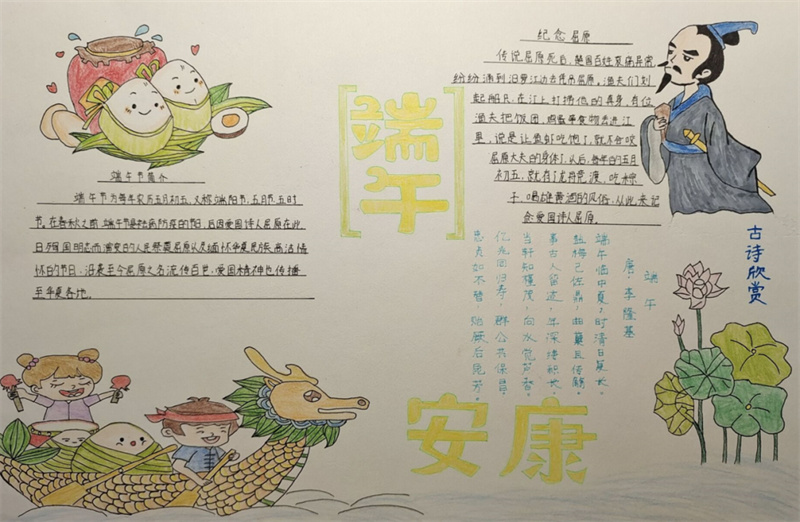 端午
端午节简介
端午节为每年农历五月初五，又称端阳节，五月节，五时
节。在春秋之前，端午节是祛病防疫的节日，后因爱国诗人屈原在此
日殉国明志而演变的人民祭奠屈原以及缅怀华夏民族高洁情
怀的节日，沿袭至今屈原之名流传百世，爱国精神也传播
至华夏各地。
纪念屈原
传说屈原死后，楚国百姓哀痛异常
纷纷涌到汨罗江边去凭吊屈原。渔夫们划
起船只，在江上打捞他的真身，有位
渔夫把饭团、鸡蛋等食物丢进江
里，说是让鱼虾吃饱了，就不会咬
屈原大夫的身体了，从后，每年的五月
初五，就有了龙舟竞渡，吃粽
子，喝雄黄酒的风俗，从此来纪
念爱国诗人屈原。
古诗欣赏
端午
唐·李隆基
端午临中夏，时清日复长。
盐梅已佐鼎，曲糵且传觞。
事古人留迹，年深缕积长。
当轩知槿茂，向水觉芦香。
亿兆同归寿，群公共保昌。
忠贞如不替，贻厥后昆芳。
安康